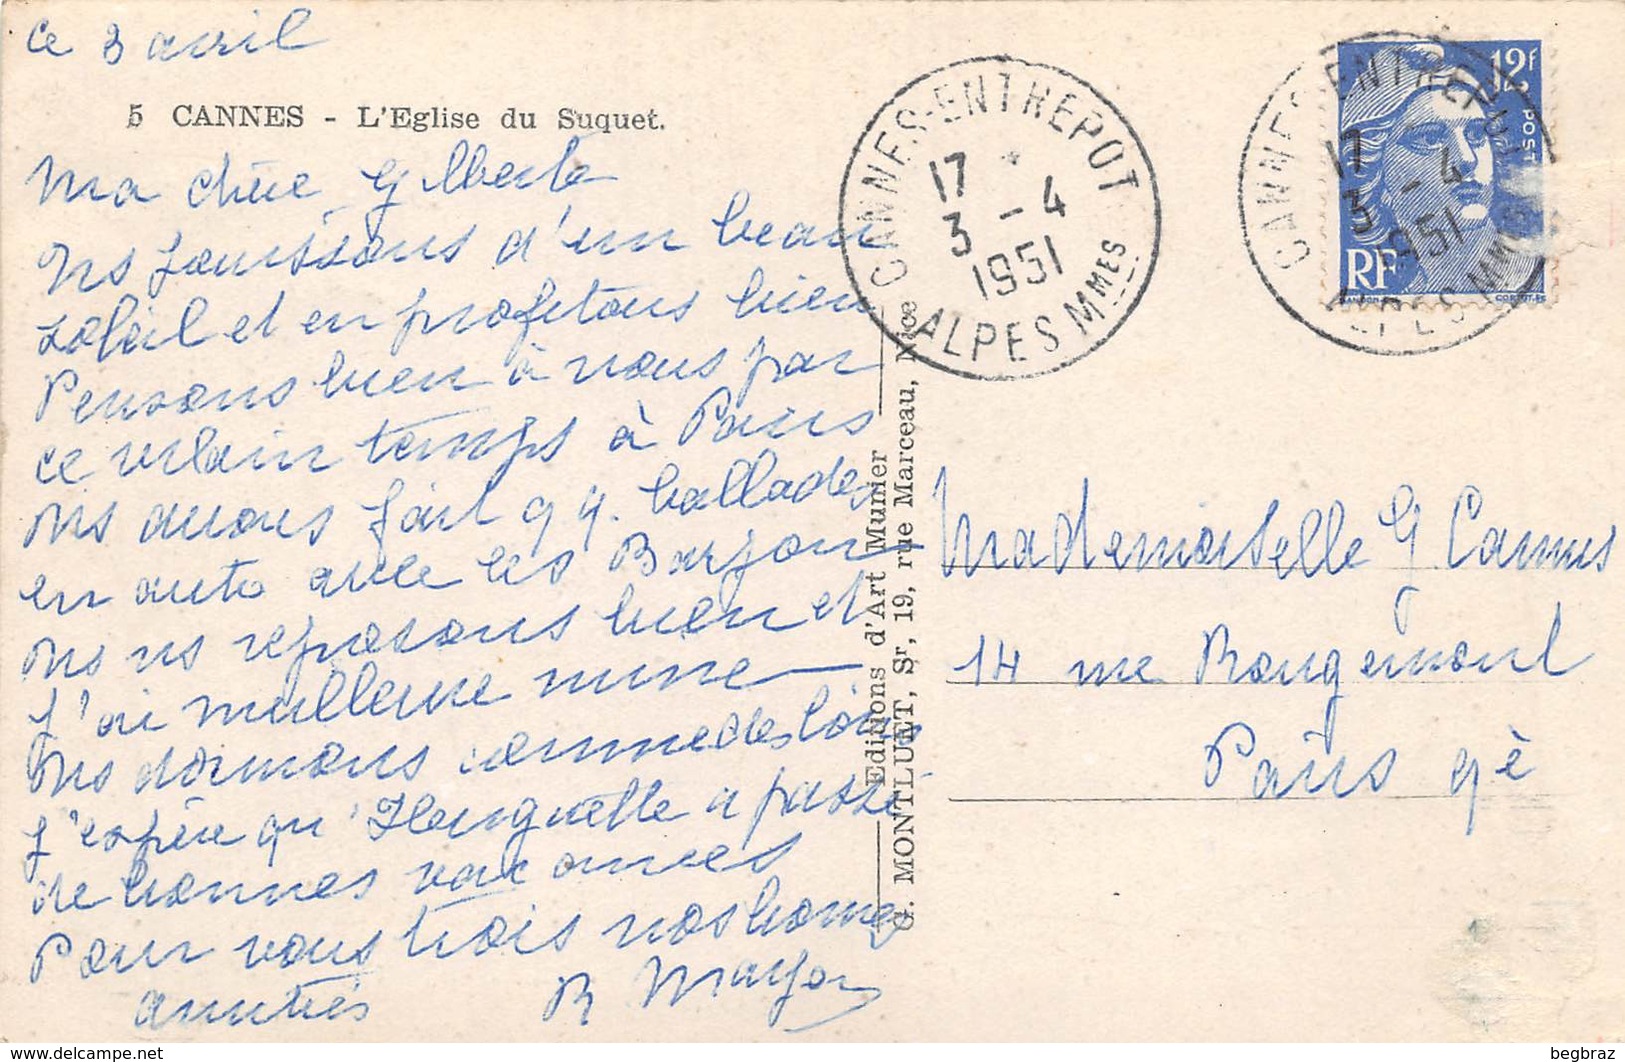 ce 3 avril
5 CANNES - L'Eglise du Suquet.
Ma chère Gilberte
ns jouissons d'un beau
soleil et en profitons bien
Pensons bien à vous par
ce vilain temps à Paris
ns avons fait qq. ballades
en auto avec les
ns ns reposons bien et
j'ai meilleure mine
ns dormons comme des loirs
j'espère qu'Huguette a passé
de bonnes vacances
Pour vous trois nos bonnes
amitiés R
Editions d'Art Munier
G. MONTLUET, Sr, 19, rue Marceau, Nice
CANNES-ENTREPOT
17
3 - 4
1951
ALPES MMES
CANNES-ENTREPOT
17
3 - 4
1951
ALPES MMES
12F
POST
RF
Mademoiselle G Camus
14 rue Rougemont
Paris 9è
begbraz